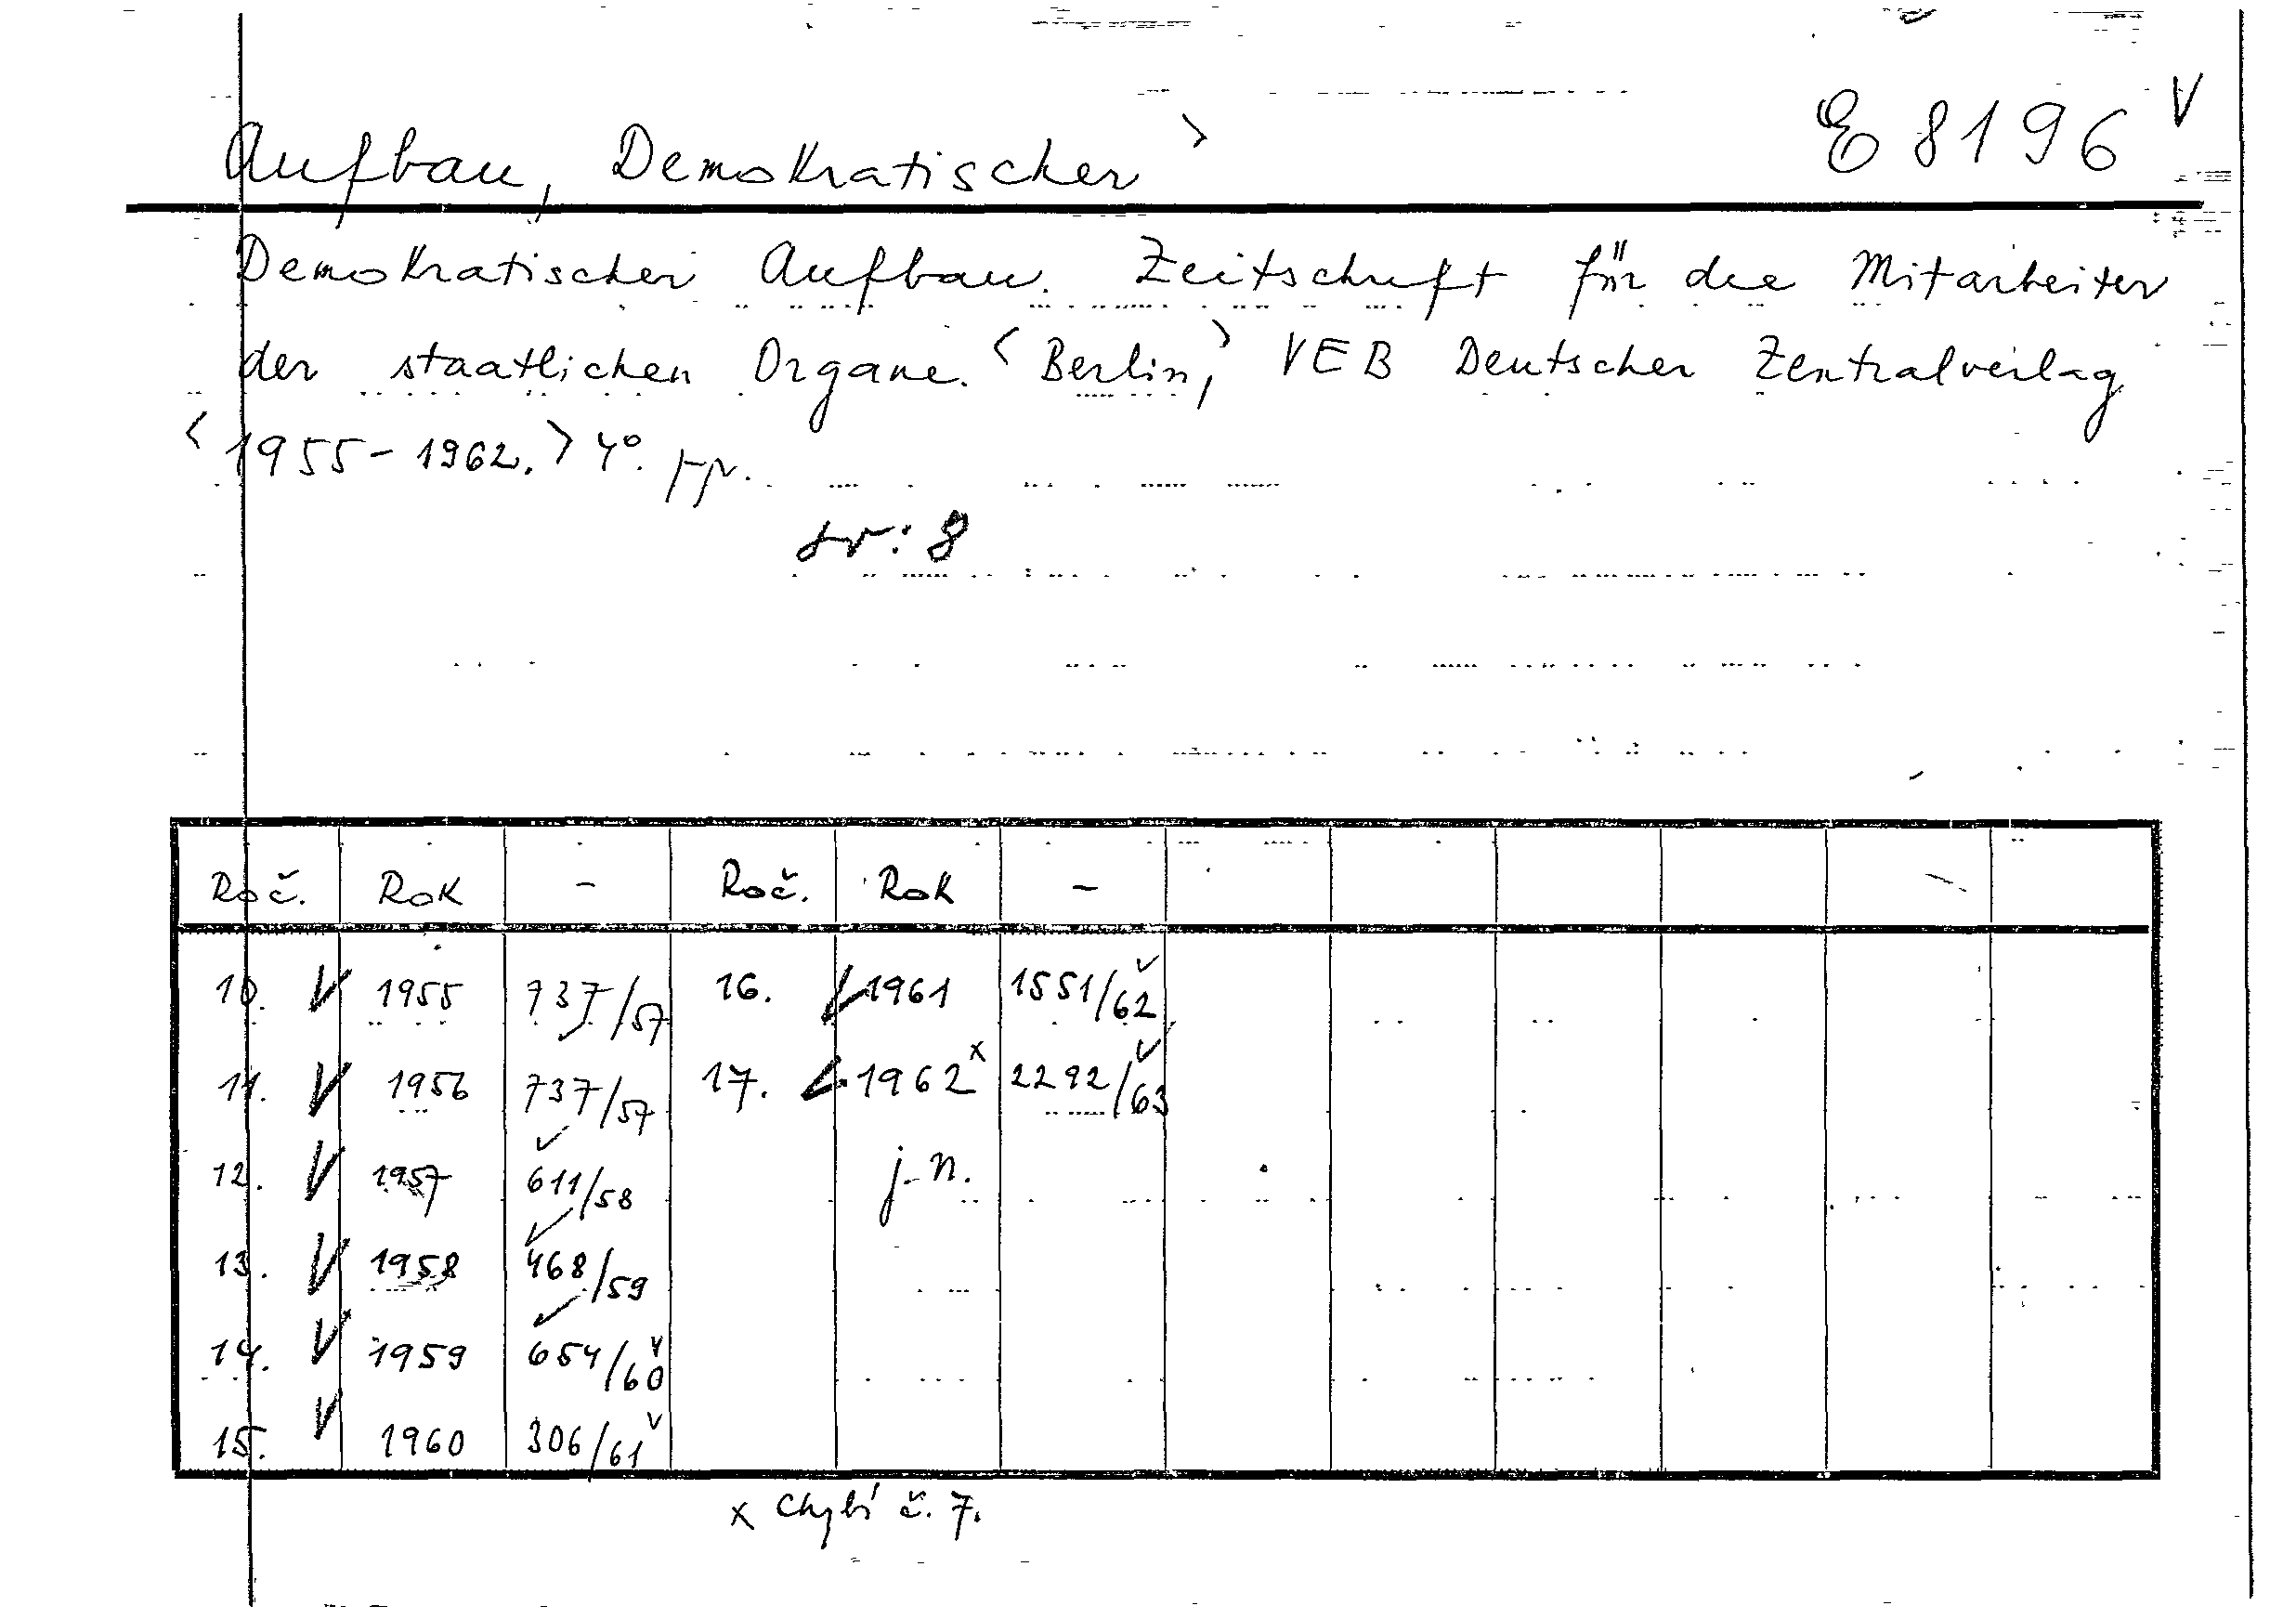 Aufbau, Demokratischer > E 8196 V
Demokratischer Aufbau. Zeitschrift für die Mitarbeiter
der staatlichen Organe. <Berlin,> VEB Deutscher Zentralverlag
<1955-1962.> 4°. pp.
sv: 8
Roč. Rok - Roč. Rok -
10. V 1955 737/57 16. V 1961 1551/62 V
11. V 1956 737/57 17. V 1962 x 2292/63 V
12. V 1957 611/58 j. n.
13. V 1958 468/59
14. V 1959 654/60 V
15. V 1960 306/61 V
x Chybí č. 7.